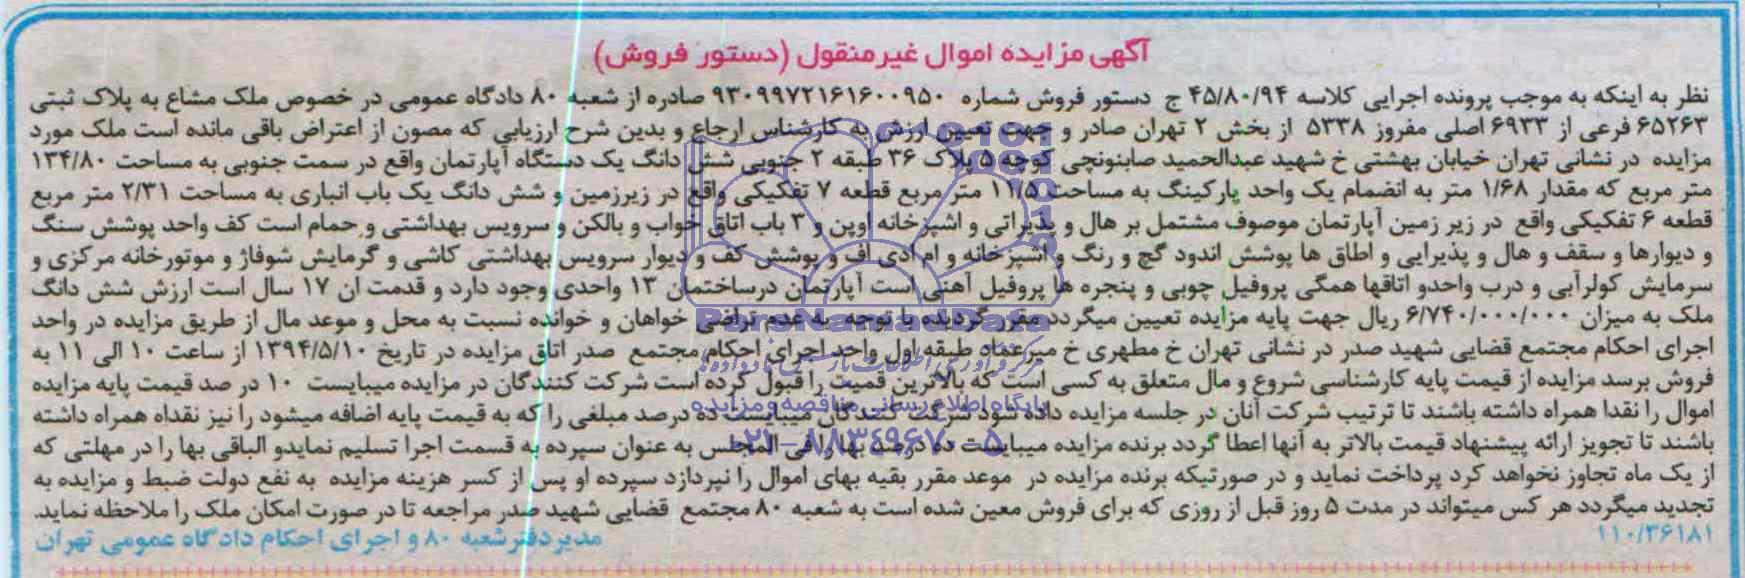 آگهی مزایده اموال غیرمنقول (دستور فروش)
نظر به اینکه به موجب پرونده اجرایی کلاسه ۴۵/۸۰/۹۴ ج دستور فروش شماره ۹۳۰۹۹۷۲۱۶۱۶۰۰۹۵۰ صادره از شعبه ۸۰ دادگاه عمومی در خصوص ملک مشاع به پلاک ثبتی
۶۵۲۶۳ فرعی از ۶۹۳۳ اصلی مفروز ۵۳۳۸ از بخش ۲ تهران صادر و جهت تعیین ارزش به کارشناس ارجاع و بدین شرح ارزیابی که مصون از اعتراض باقی مانده است ملک مورد
مزایده در نشانی تهران خیابان بهشتی خ شهید عبدالحمید صابونچی کوچه ۵ پلاک ۳۶ طبقه ۲ جنوبی شش دانگ یک دستگاه آپارتمان واقع در سمت جنوبی به مساحت ۱۳۴/۸۰
متر مربع که مقدار ۱/۶۸ متر به انضمام یک واحد پارکینگ به مساحت ۱۱/۵ متر مربع قطعه ۷ تفکیکی واقع در زیرزمین و شش دانگ یک باب انباری به مساحت ۲/۳۱ متر مربع
قطعه ۶ تفکیکی واقع در زیر زمین آپارتمان موصوف مشتمل بر هال و پذیراتی و اشپزخانه اوپن و ۳ باب اتاق خواب و بالکن و سرویس بهداشتی و حمام است کف واحد پوشش سنگ
و دیوارها و سقف و هال و پذیرایی و اطاق ها پوشش اندود گچ و رنگ و اشپزخانه و ام ادی اف و پوشش کف و دیوار سرویس بهداشتی کاشی و گرمایش شوفاژ و موتورخانه مرکزی و
سرمایش کولرآبی و درب واحدو اتاقها همگی پروفیل چوبی و پنجره ها پروفیل آهنی است آپارتمان درساختمان ۱۳ واحدی وجود دارد و قدمت ان ۱۷ سال است ارزش شش دانگ
ملک به میزان ۶/۷۴۰/۰۰۰/۰۰۰ ریال جهت پایه مزایده تعیین میگردد مقرر گردیده با توجه به عدم تراضی خواهان و خوانده نسبت به محل و موعد مال از طریق مزایده در واحد
اجرای احکام مجتمع قضایی شهید صدر در نشانی تهران خ مطهری خ میرعماد طبقه اول واحد اجرای احکام مجتمع صدر اتاق مزایده در تاریخ ۱۳۹۴/۵/۱۰ از ساعت ۱۰ الی ۱۱ به
فروش برسد مزایده از قیمت پایه کارشناسی شروع و مال متعلق به کسی است که بالاترین قمیت را قبول کرده است شرکت کنندگان در مزایده میبایست ۱۰ در صد قیمت پایه مزایده
اموال را نقدا همراه داشته باشند تا ترتیب شرکت آنان در جلسه مزایده داده شود شرکت کنندگان میبایست ده درصد مبلغی را که به قیمت پایه اضافه میشود را نیز نقداه همراه داشته
باشند تا تجویز ارائه پیشنهاد قیمت بالاتر به آنها اعطا گردد برنده مزایده میبایست ده درصد بها را فی المجلس به عنوان سپرده به قسمت اجرا تسلیم نمایدو الباقی بها را در مهلتی که
از یک ماه تجاوز نخواهد کرد پرداخت نماید و در صورتیکه برنده مزایده در موعد مقرر بقیه بهای اموال را نپردازد سپرده او پس از کسر هزینه مزایده به نفع دولت ضبط و مزایده به
تجدید میگردد هر کس میتواند در مدت ۵ روز قبل از روزی که برای فروش معین شده است به شعبه ۸۰ مجتمع قضایی شهید صدر مراجعه تا در صورت امکان ملک را ملاحظه نماید.
۱۱۰/۳۶۱۸۱ مدیردفترشعبه ۸۰ و اجرای احکام دادگاه عمومی تهران
ParsNamadData
پایگاه اطلاع رسانی مناقصه و مزایده
۰۲۱-۸۸۳۴۹۶۷۰-۵